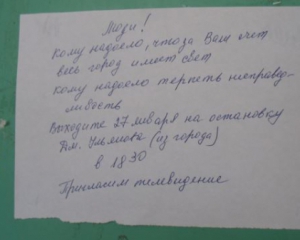 Люди!
Кому надоело, что за Ваш счет
весь город имеет свет
кому надоело терпеть несправед-
ливость
Выходите 27 января на остановку
Дм. Ульянова (из города)
в 1830
Пригласим телевидение